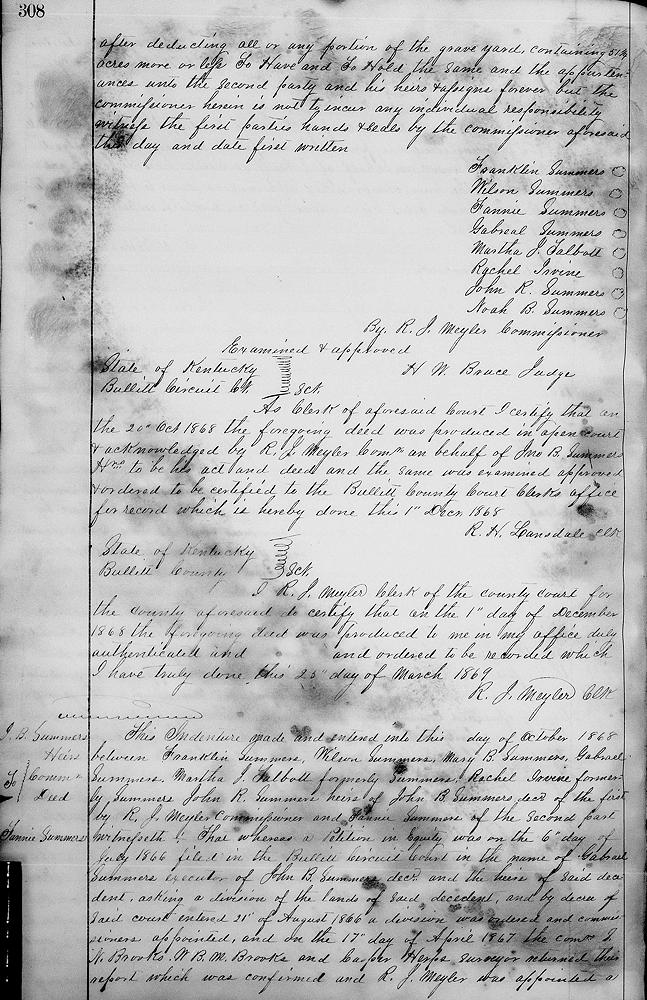 308
after deducting all or any portion of the grave yard, containing 51 1/4
acres more or less To Have and To Hold the same and the appurten-
ances unto the second party and his heirs & assigns forever but the
commissioner herein is not to incur any individual responsibility
witness the first parties hands & seals by the commissioner aforesaid
the day and date first written
Franklin Summers
Wilson Summers
Fannie Summers
Gabreal Summers
Martha J. Talbott
Rachel Irvine
John R. Summers
Noah B. Summers
By. R. J. Meyler Commissioner
Examined & approved
H. W. Bruce Judge
State of Kentucky
Bullitt Circuit Ct. Sct.
As Clerk of aforesaid Court I certify that on
the 20" Oct 1868 the foregoing deed was produced in open court
& acknowledged by R. J. Meyler Comr on behalf of Jno B. Summers
Hrs to be his act and deed and the same was examined approved
& ordered to be certified to the Bullitt County Court Clerks office
for record which is hereby done this 1" Decr 1868
R. H. Lansdale Clk
State of Kentucky
Bullitt County Sct.
I R. J. Meyler Clerk of the county court for
the county aforesaid do certify that on the 1" day of December
1868 the foregoing deed was produced to me in my office duly
authenticated and and ordered to be recorded which
I have truly done this 25" day of March 1869
R. J. Meyler Clk
J. B. Summers
Heirs
To Commr
Deed
Fannie Summers
This Indenture made and entend into this day of October 1868
between Franklin Summers, Wilson Summers, Mary B. Summers, Gabreal
Summers, Martha J. Talbott formerly Summers, Rachel Irvine former-
ly Summers John R. Summers heirs of John B. Summers decd of the first
by R. J. Meyler Commissioner and Fannie Summers of the second part
witnesseth: That whereas a Petition in Equity was on the 6" day of
July 1866 filed in the Bullitt Circuit Court in the name of Gabreal
Summers executor of John B. Summers decd. and the heirs of said dece
dent, asking a division of the lands of said decedent, and by decree of
said court entered 21" of August 1866 a division was ordered and commis-
sioners appointed, and on the 17" day of April 1867 the comrs J.
N. Brooks, W. B. M. Brooks and Casper Herps surveyor returned their
report which was confirmed and R. J. Meyler was appointed a